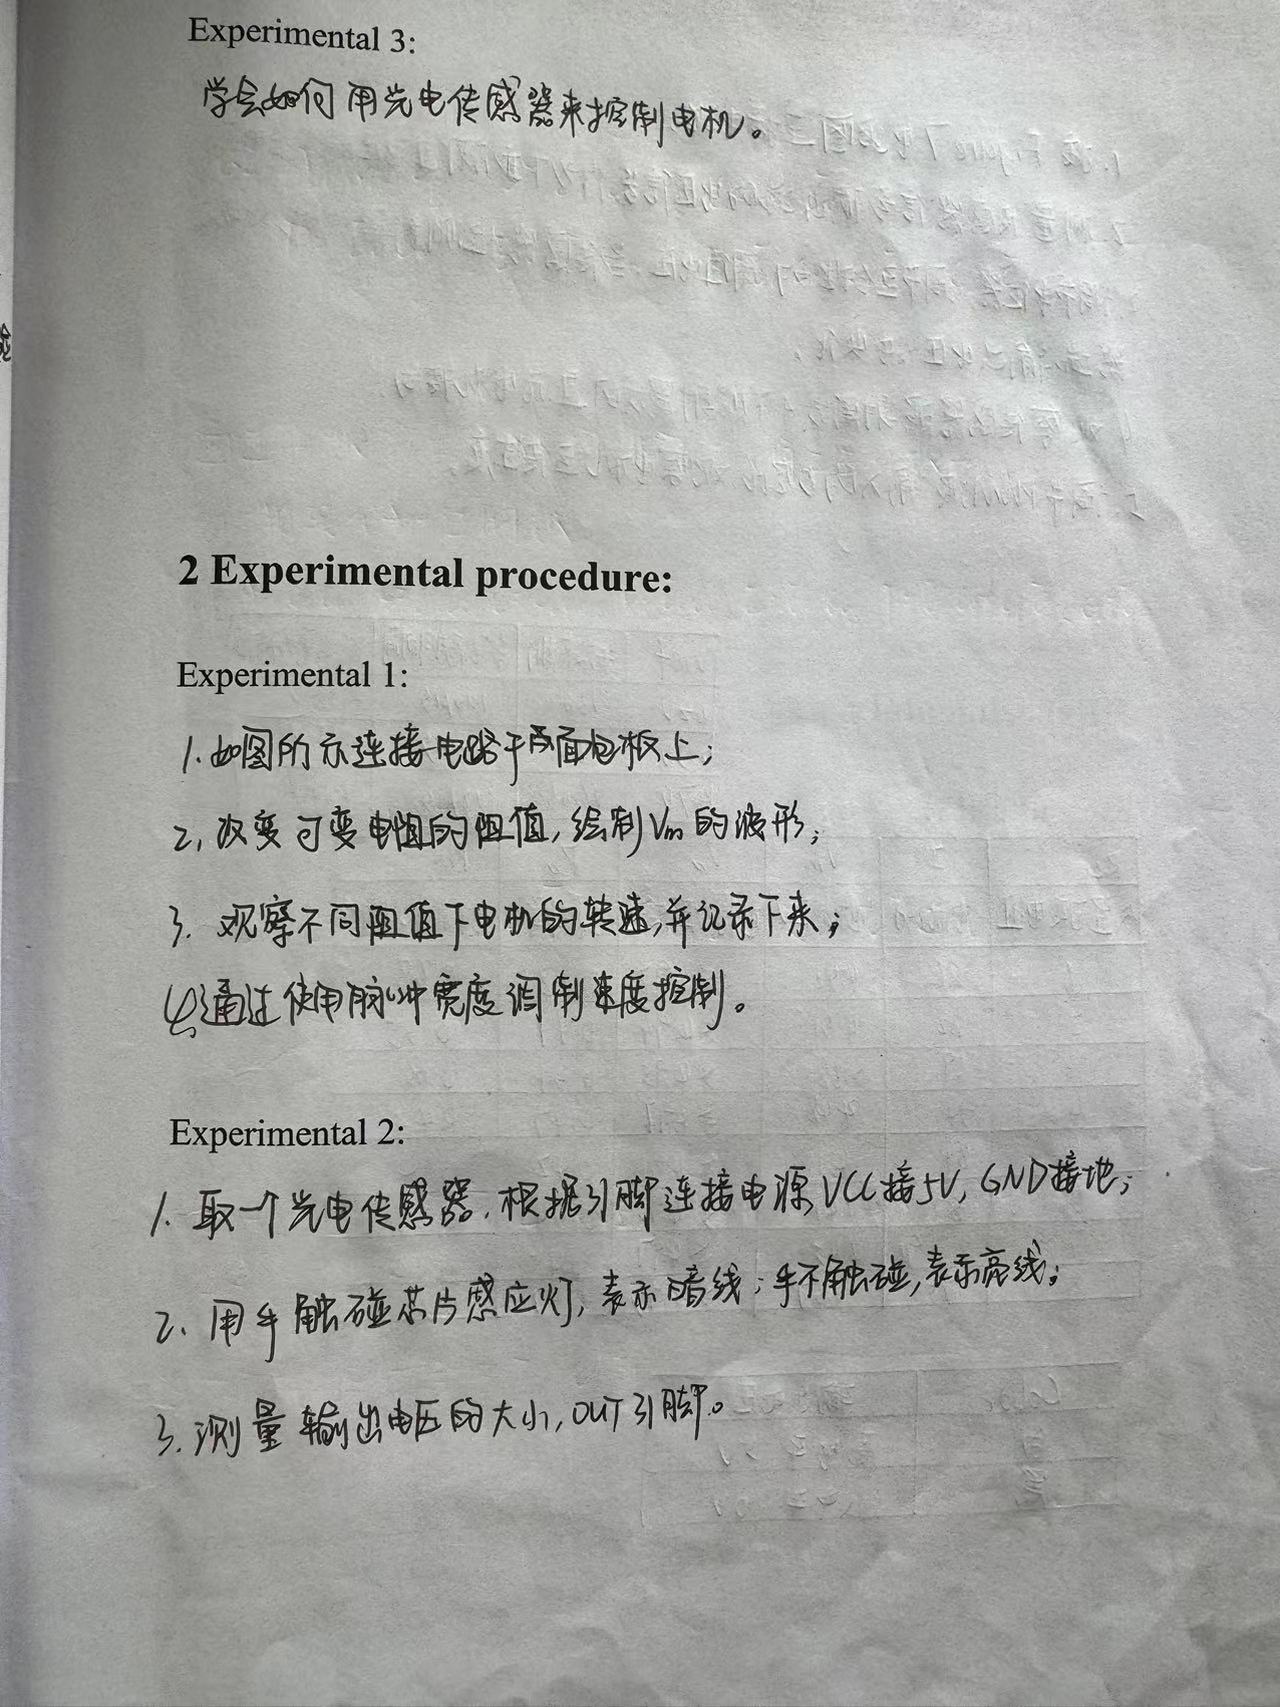 Experimental 3:
学会如何用光电传感器来控制电机。
2 Experimental procedure:
Experimental 1:
1.如图所示连接电路于面包板上;
2,改变可变电阻的阻值,绘制Vm的波形;
3. 观察不同阻值下电机的转速,并记录下来;
4.通过使用脉冲宽度调制速度控制。
Experimental 2:
1. 取一个光电传感器,根据引脚连接电源,VCC接5V,GND接地;
2、用手触碰芯片感应灯,表示暗线;手不触碰,表示亮线;
3.测量输出电压的大小,OUT引脚。